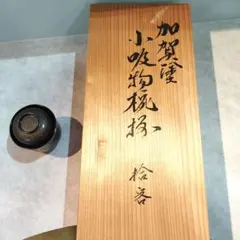 加賀塗
小吸物椀揃
拾客